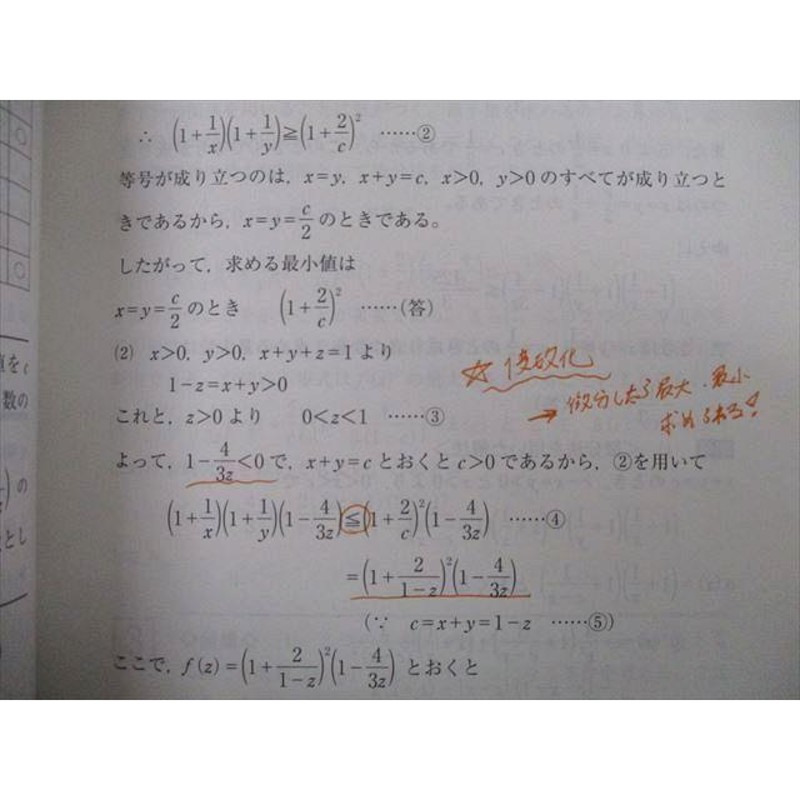 ∴ (1+1/x)(1+1/y)≧(1+2/c)² ……②
等号が成り立つのは，x=y，x+y=c，x>0，y>0 のすべてが成り立つと
きであるから，x=y=c/2 のときである。
したがって，求める最小値は
x=y=c/2 のとき (1+2/c)² ……(答)
(2) x>0，y>0，x+y+z=1 より
1-z=x+y>0
これと，z>0 より 0<z<1 ……③
よって，1-4/3z<0 で，x+y=c とおくと c>0 であるから，②を用いて
(1+1/x)(1+1/y)(1-4/3z)≦(1+2/c)²(1-4/3z) ……④
=(1+2/(1-z))²(1-4/3z)
(∵ c=x+y=1-z ……⑤)
ここで，f(z)=(1+2/(1-z))²(1-4/3z) とおくと
☆
→ 微分したら最大、最小
求める
値をc
数の
の
とし